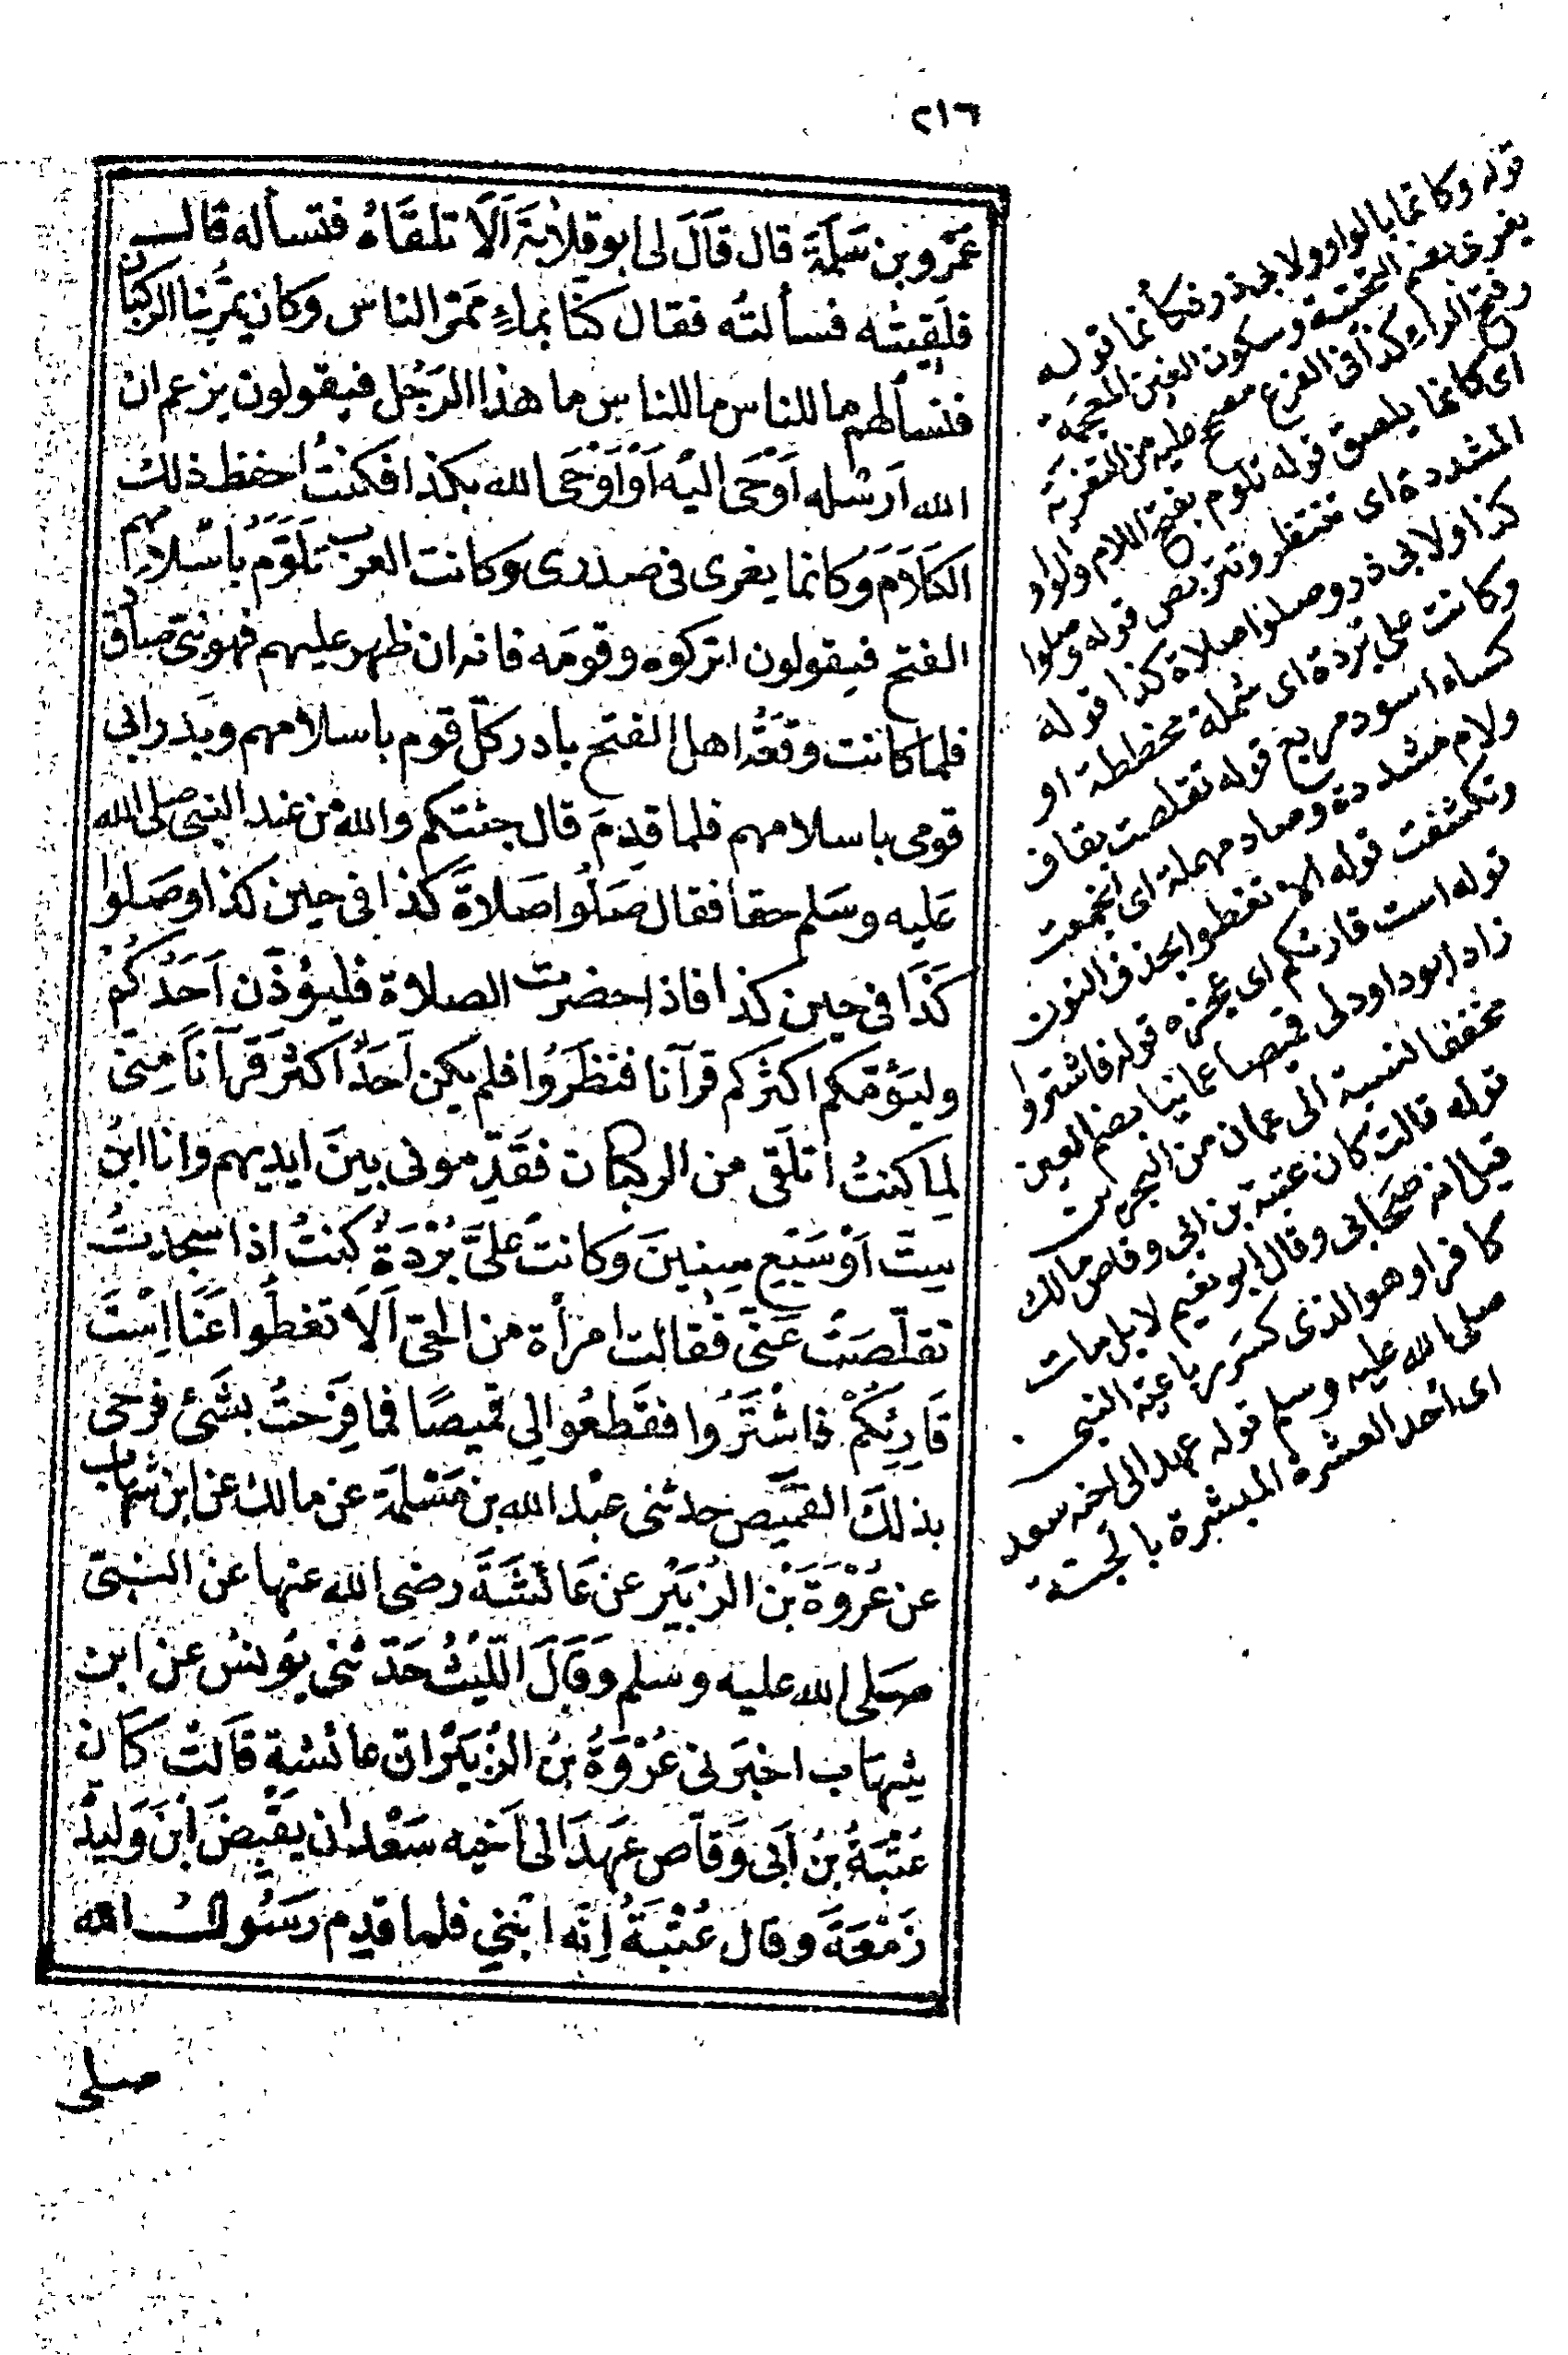 ٢١٦
عَمْرو بن سَلِمَةَ قال قَالَ لى ابو قلابَةَ اَلَا تلقَاهُ فتسأله قال
فلَقِيتُه فسألتُه فقال كنَّا بماءٍ مَمَرّ الناس وكان يمُرُّ بنا الركبان
فنسألهم ما للناس ما للناس ما هذا الرَجُل فيقولون يزعم ان
الله اَرْسَله اَوْحَى اليْه اَوْ اَوْحَى الله بكذا فكنتُ احفظ ذلك
الكَلَامَ وكانما يغرى فى صدرى وكانت العرب تَلَوَّمُ بِاسْلامِهم
الفتح فيقولون اتركوه وقومَه فانه ان ظهر عليهم فهو نبىّ صادق
فلما كانت وقعَةُ اهل الفتح بادر كلّ قوم باسلامهم وبَدر ابى
قومى باسلامهم فلما قدِمَ قال جئتكم والله من عند النبى صلى الله
عَليه وسَلم حقا فقال صَلُوا صَلَاةَ كذا فى حين كذا وصَلوا
كَذَا فى حين كذا فاذا حضرت الصلاة فليؤذّن اَحَدُكُمْ
وليَؤمّكم اكثركم قرآنا فنظَرُوا فلم يكن اَحَدٌ اكثرَ قرآناً مِنّى
لِما كنتُ اتلَقى من الركبان فقَدّمونى بينَ ايديهم وانا ابنُ
سِتّ اَوْ سَبْعِ سِنِينَ وكانتْ عَلىَّ بُرْدَةٌ كنتُ اذا سجدتُ
تقلّصَتْ عَنّى فقالت امرأة من الحىّ اَلَا تغطُوا عَنَّا اِسْتَ
قَارِئِكُمْ فاشْتَرَوا فقَطعُوا لى قميصًا فما فَرِحتُ بشَئ فرحى
بذلكَ القَميص حدثنى عبْد الله بن مَسْلمَة عن مالك عن ابن شهاب
عن عُرْوَةَ بْن الزبَيْر عن عَائشَةَ رضى الله عنها عن النبىّ
صَلى الله عليه وسلم وَقالَ اللّيْثُ حَدّثنى يُونسُ عن ابن
شِهَاب اخبَرنى عُرْوَةُ بنُ الزُبَيْر ان عائشة قالَتْ كان
عُتْبَةُ بنُ اَبى وَقاص عَهِدَ الى اَخيه سَعْد ان يَقْبِضَ ابنَ وَليدَةِ
زَمْعَةَ وقال عُتْبَةُ اِنّه ابْنِى فلما قدِم رَسُول الله
صلى
قوله وكانما بالواو ولابى ذر فكأنما قوله
يغرى بضم التحتية وسكون الغين المعجمة
وفتح الراء كذا فى الفرع مصحح عليه من التغرية
اى كانما يلصق قوله تلوم بفتح اللام والواو
المشددة اى تنتظر وتتربص قوله وصلوا
كذا ولابى ذر وصلوا صلاة كذا قوله
وكانت على بردة اى شملة مخططة او
كساء اسود مربع قوله تقلصت بقاف
ولام مشددة وصاد مهملة اى انجمعت
وتكشفت قوله الا تغطوا بحذف النون
قوله است قارئكم اى عجزه قوله فاشتروا
زاد ابو داود لى قميصا عمانيا بضم العين
مخففا نسبة الى عمان من البحرين
قوله قالت كان عتبة بن ابى وقاص مالك
قيل انه صحابى وقال ابو نعيم لا بل مات
كافرا وهو الذى كسر رباعية النبى
صلى الله عليه وسلم قوله عهد الى اخيه سعد
اى احد العشرة المبشرة بالجنة